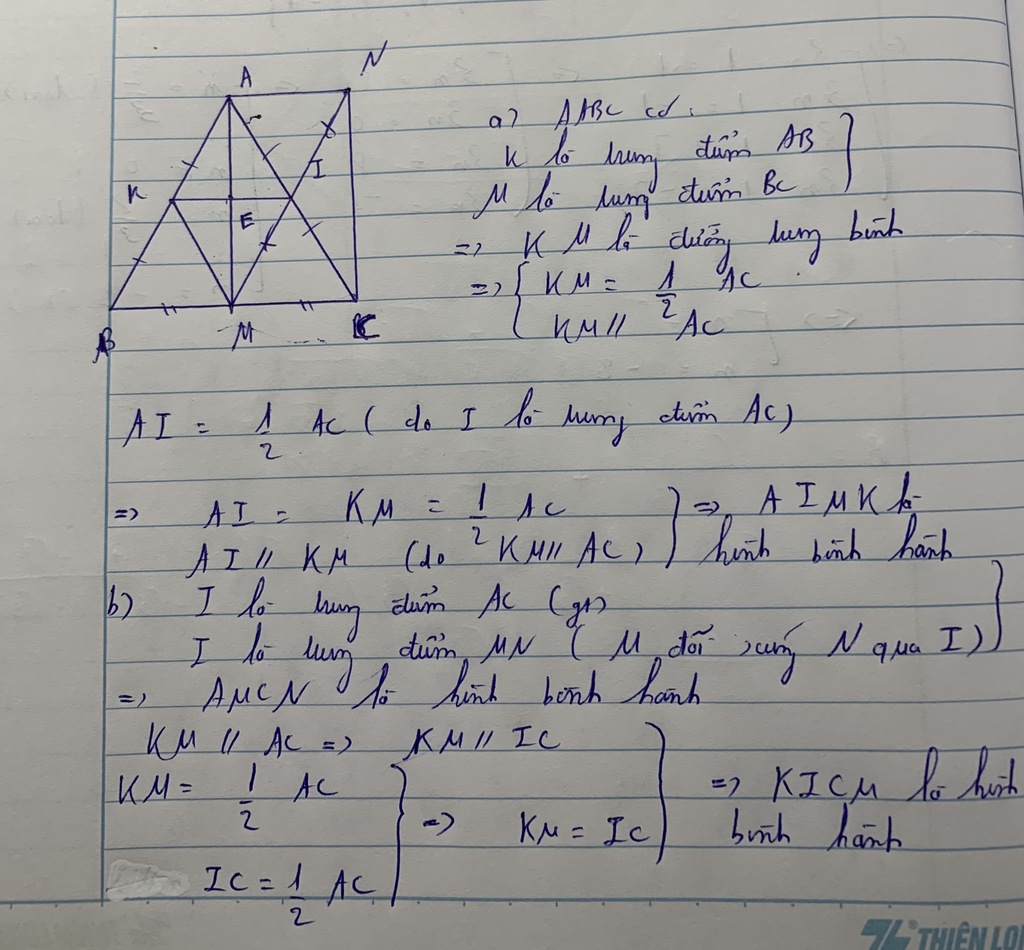 A
N
K
I
E
B
M
C
a) ΔABC có:
K là trung điểm AB
M là trung điểm BC
=> KM là đường trung bình
=> { KM = 1/2 AC
KM // AC
AI = 1/2 AC ( do I là trung điểm AC)
=> AI = KM = 1/2 AC } => AIMK là
AI // KM (do KM // AC) hình bình hành
b) I là trung điểm AC (gt)
I là trung điểm MN ( M đối xứng N qua I) }
=> AMCN là hình bình hành
KM // AC => KM // IC
KM = 1/2 AC } => KM = IC } => KICM là hình
bình hành
IC = 1/2 AC
THIÊN LO